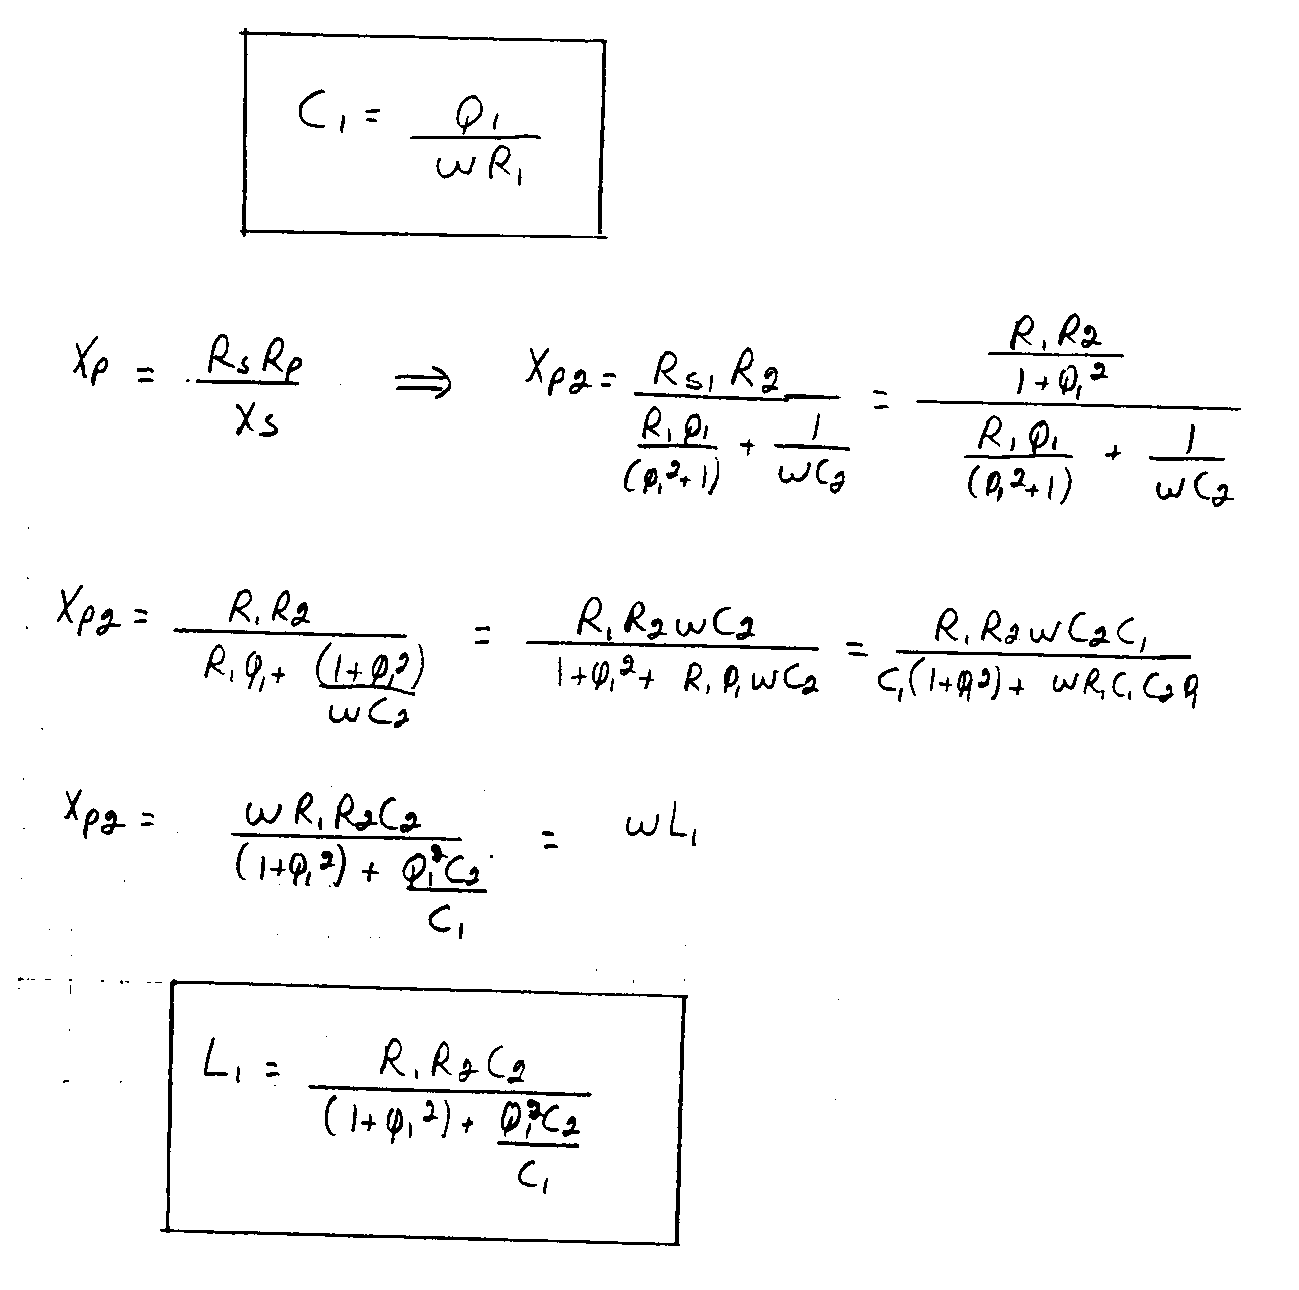 C₁ = Q₁ / (ω R₁)
X_P = R_S R_P / X_S ⟹ X_P2 = R_S1 R_2 / (R₁Q₁/(Q₁²+1) + 1/(ωC₂)) = (R₁R₂/(1+Q₁²)) / (R₁Q₁/(Q₁²+1) + 1/(ωC₂))
X_P2 = R₁R₂ / (R₁Q₁ + (1+Q₁²)/(ωC₂)) = R₁R₂ωC₂ / (1+Q₁² + R₁Q₁ωC₂) = R₁R₂ωC₂C₁ / (C₁(1+Q₁²) + ωR₁C₁C₂Q₁)
X_P2 = ωR₁R₂C₂ / ((1+Q₁²) + Q₁²C₂/C₁) = ωL₁
L₁ = R₁R₂C₂ / ((1+Q₁²) + Q₁²C₂/C₁)